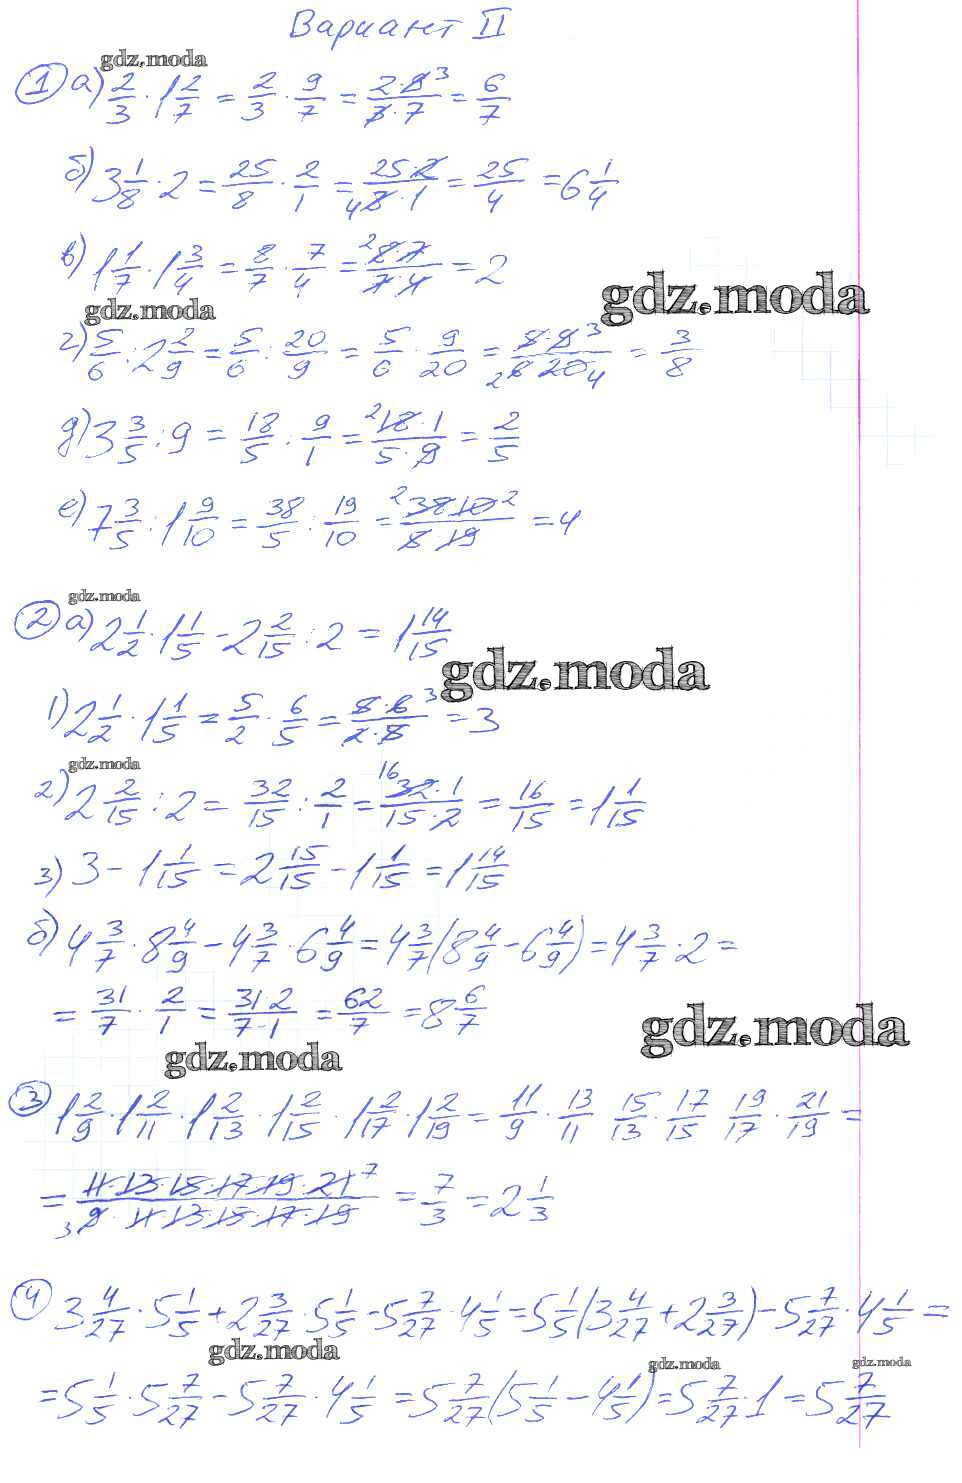 Вариант II
gdz.moda
① а) 2/3 · 1 2/7 = 2/3 · 9/7 = 2·9 3/3·7 = 6/7
б) 3 1/8 · 2 = 25/8 · 2/1 = 25·2/4 8·1 = 25/4 = 6 1/4
в) 1 1/7 · 1 3/4 = 8/7 · 7/4 = 2 8·7/7·4 = 2
gdz.moda
gdz.moda
г) 5/6 : 2 2/9 = 5/6 : 20/9 = 5/6 · 9/20 = 5·9 3/2 6 20 4 = 3/8
д) 3 3/5 : 9 = 18/5 : 9/1 = 2 18·1/5·9 = 2/5
е) 7 3/5 : 1 9/10 = 38/5 : 19/10 = 2 38·10 2/5·19 = 4
gdz.moda
② а) 2 1/2 · 1 1/5 - 2 2/15 : 2 = 1 14/15
gdz.moda
1) 2 1/2 · 1 1/5 = 5/2 · 6/5 = 5·6 3/2·5 = 3
gdz.moda
2) 2 2/15 : 2 = 32/15 : 2/1 = 16 32·1/15·2 = 16/15 = 1 1/15
3) 3 - 1 1/15 = 2 15/15 - 1 1/15 = 1 14/15
б) 4 3/7 · 8 4/9 - 4 3/7 · 6 4/9 = 4 3/7 (8 4/9 - 6 4/9) = 4 3/7 · 2 =
= 31/7 · 2/1 = 31·2/7·1 = 62/7 = 8 6/7
gdz.moda
gdz.moda
③ 1 2/9 · 1 2/11 · 1 2/13 · 1 2/15 · 1 2/17 · 1 2/19 = 11/9 · 13/11 15/13 · 17/15 19/17 · 21/19 =
= 11·13·15·17·19·21 7/3 9·11·13·15·17·19 = 7/3 = 2 1/3
④ 3 4/27 · 5 1/5 + 2 3/27 · 5 1/5 - 5 7/27 · 4 1/5 = 5 1/5 (3 4/27 + 2 3/27) - 5 7/27 · 4 1/5 =
gdz.moda
gdz.moda
gdz.moda
= 5 1/5 · 5 7/27 - 5 7/27 · 4 1/5 = 5 7/27 (5 1/5 - 4 1/5) = 5 7/27 · 1 = 5 7/27